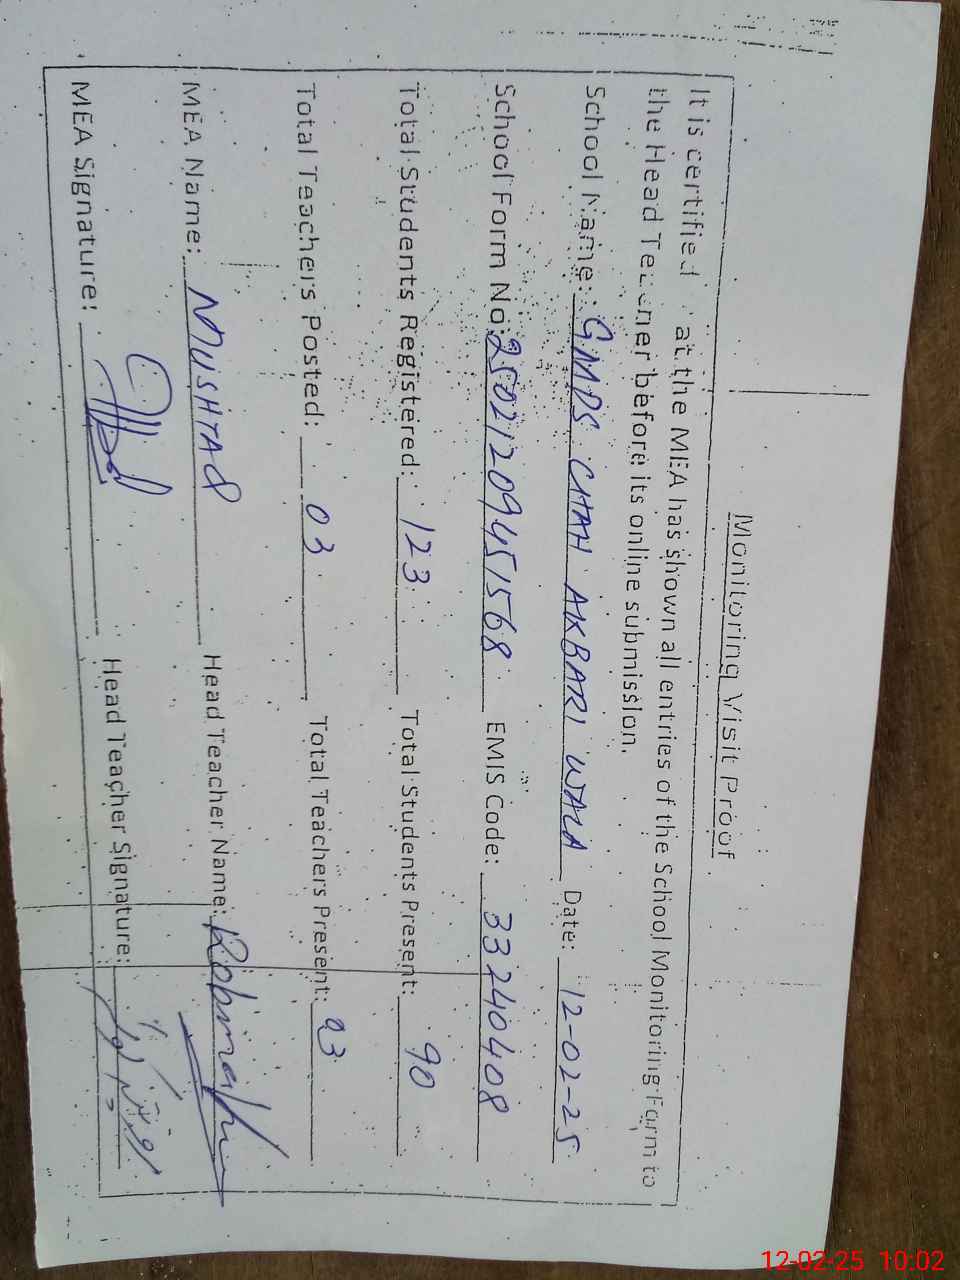 Monitoring Visit Proof
It is certified at the MEA has shown all entries of the School Monitoring Form to
the Head Teacher before its online submission.
School Name: GMPS CHAH AKBARI WALA Date: 12-02-25
School Form No: 25021209451568 EMIS Code: 33240408
Total Students Registered: 123 Total Students Present: 90
Total Teachers Posted: 03 Total Teachers Present: 03
MEA Name: MUSHTAQ Head Teacher Name:
MEA Signature: Head Teacher Signature:
12-02-25 10:02